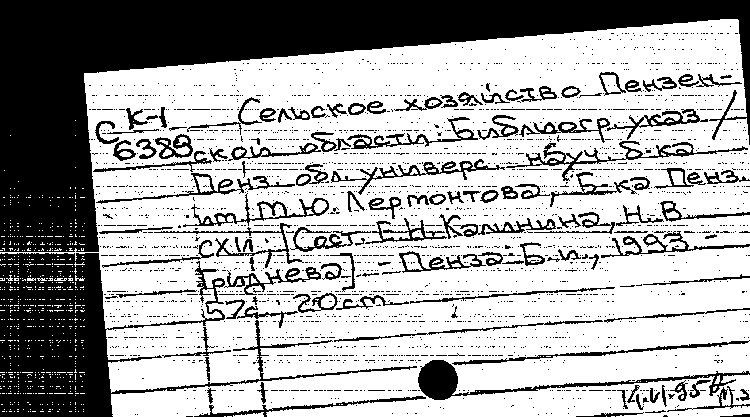 К-1 Сельское хозяйство Пензен-
С 6389 ской области: Библиогр. указ /
Пенз. обл. универс. науч. б-ка
им М.Ю. Лермонтова, Б-ка Пенз.
СХИ; [Сост. Е.Н. Калинина, Н.В.
Гриднева] - Пенза: Б.и., 1993. -
57с.; 20см